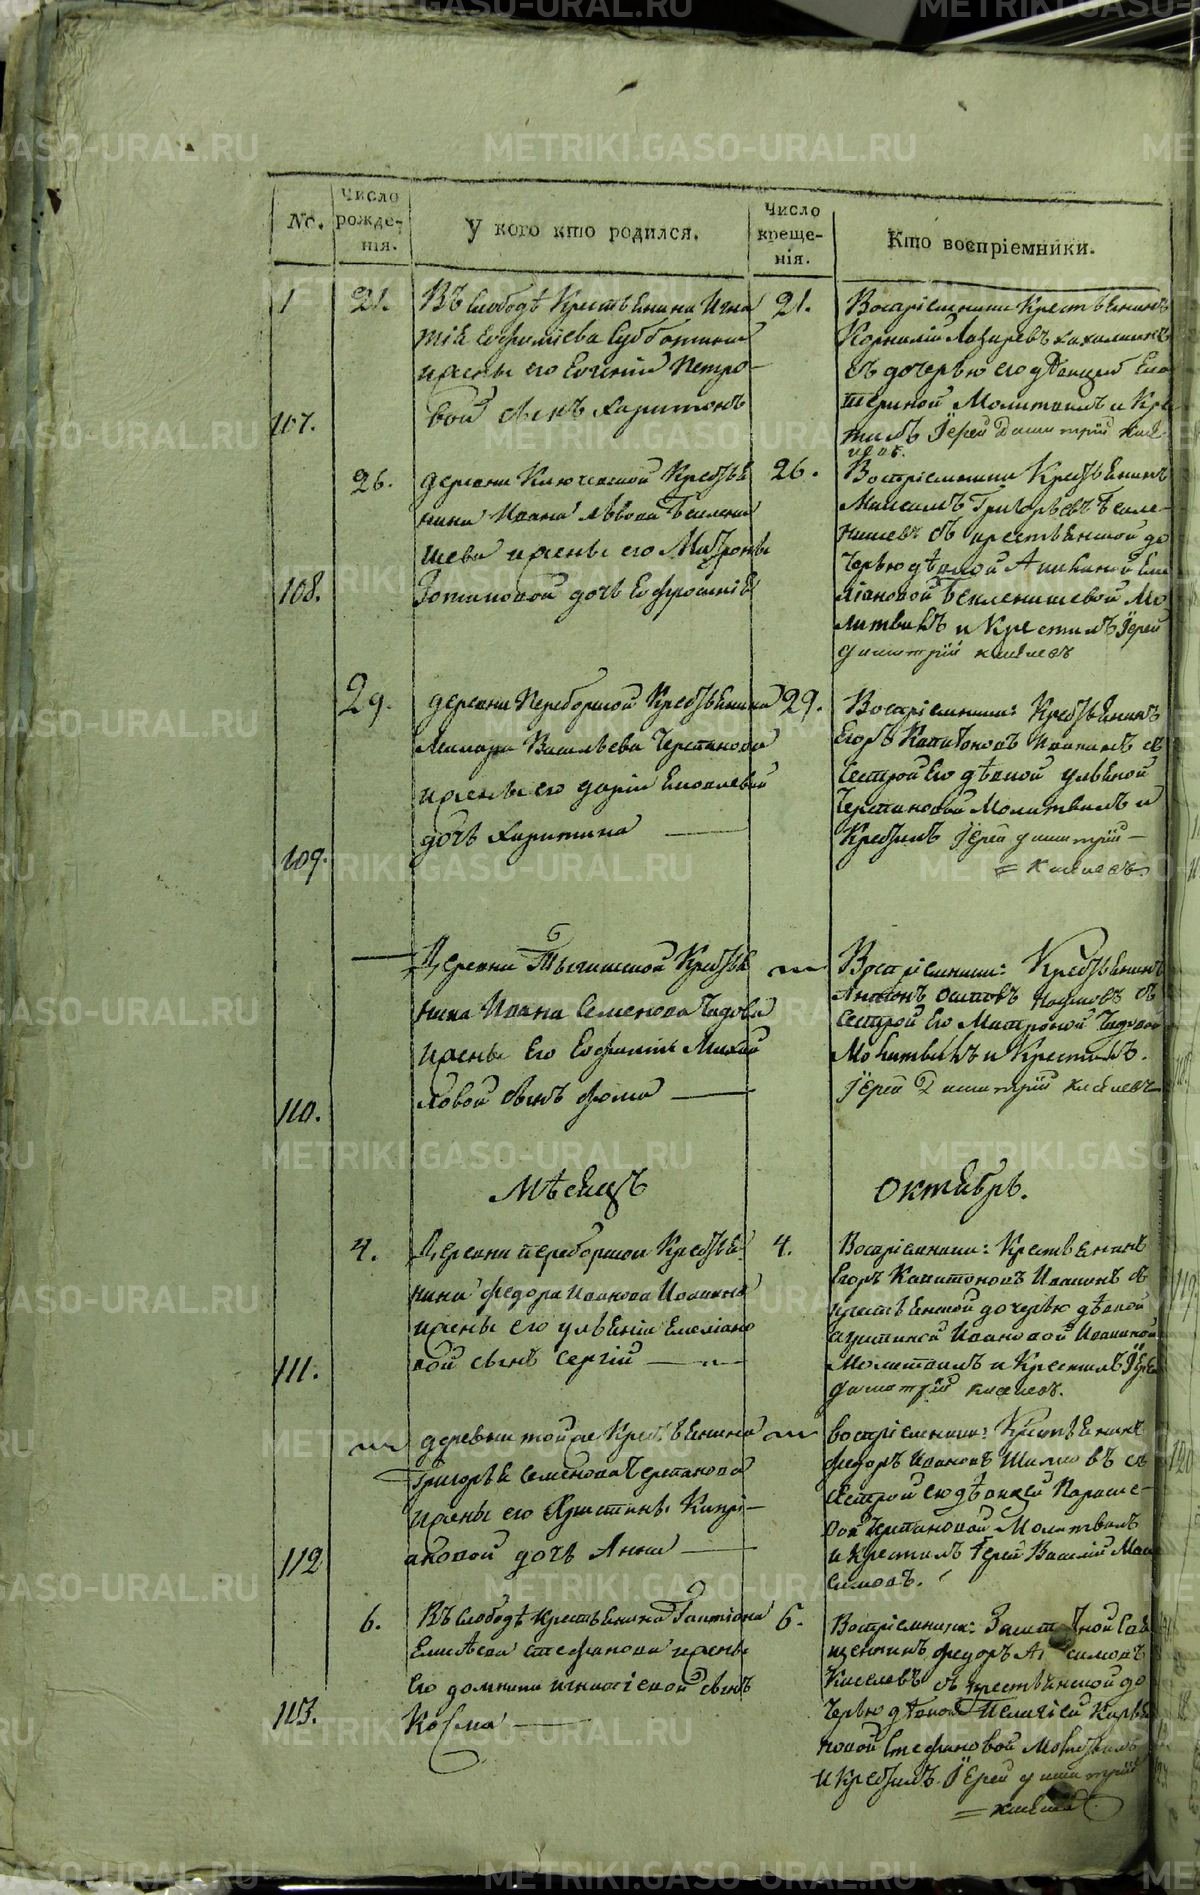 No.
Число рожде-
нія.
У кого кто родился.
Число
креще-
нія.
Кто воспріемники.
1
107.
21.
Въ Слободѣ Крестьянина Игна
тія Евфиміева Субботина
жены его Евгеніи Петро-
вой сынъ Харитонъ
21.
Воспріемники Крестьянинъ
Корнилій Лазаревъ
съ дочерью его дѣвицей Ека
териной Молитвилъ и Кре
тилъ Іерей Димитрій
108.
26.
деревни Ключевской Крестья
нина Ивана Львова Беклени
шева жены его Матроны
Зотиковой дочь Евфросинія
26.
Воспріемники Крестьянинъ
Максимъ Григорьевъ Бекле-
нишевъ съ крестьянской до
черью дѣвкой Еме
ліановой Бекленишевой Мо
литвилъ и Крестилъ Іерей
Димитрій Киселевъ
109.
29.
деревни Переборной Крестьянина
Макара Васильева Черепанова
жены его Даріи Яковлевой
дочь Харитина
29.
Воспріемники: Крестьянинъ
Егоръ Капитоновъ Ивакинъ съ
Сестрой Его дѣвкой Ульяной
Черепановой Молитвилъ и
Крестилъ Іерей Димитрій
= Киселевъ
110.
Деревни Тыгишской Крестья
нина Ивана Семенова Чадова
жены Его Евфиміи Михай
ловой сынъ Фома
Воспріемники: Крестьянинъ
Антонъ Осиповъ Наумовъ съ
Сестрой Его Матроной Чадовой
Молитвилъ и Крестилъ.
Іерей Димитрій Киселевъ
Мѣсяцъ
Октябрь.
111.
4.
Деревни Переборной Крестья
нина Федора Иванова Ивакина
жены его Ульяніи Емеліано
вой сынъ Сергій
4.
Воспріемники: Крестьянинъ
Егоръ Капитоновъ Ивакинъ съ
крестьянской дочерью дѣвкой
Ивановой Ивакиной
Молитвилъ и Крестилъ Іерей
Димитрій Киселевъ.
112
деревни той же Крестьянина
Григорья Семенова Черепанова
жены его Христины Кипрі-
ановой дочь Анна
воспріемники: Крестьянинъ
Федоръ Ивановъ съ
Сестрой ею дѣвкой Параске-
вой Черепановой Молитвилъ
и Крестилъ Іерей Василій Мак
симовъ.
113.
6.
Въ Слободѣ Крестьянина
Елисѣева Стефанова жены
Его Домники Игнатіевой сынъ
Косма
6.
Воспріемники: Свя
щенникъ Федоръ
Киселевъ съ Крестьянской до
черью дѣвкой Пелагіей Кирья
новой Стефановой Молитвилъ
и Крестилъ Іерей Димитрій
= Киселевъ
METRIKI.GASO-URAL.RU